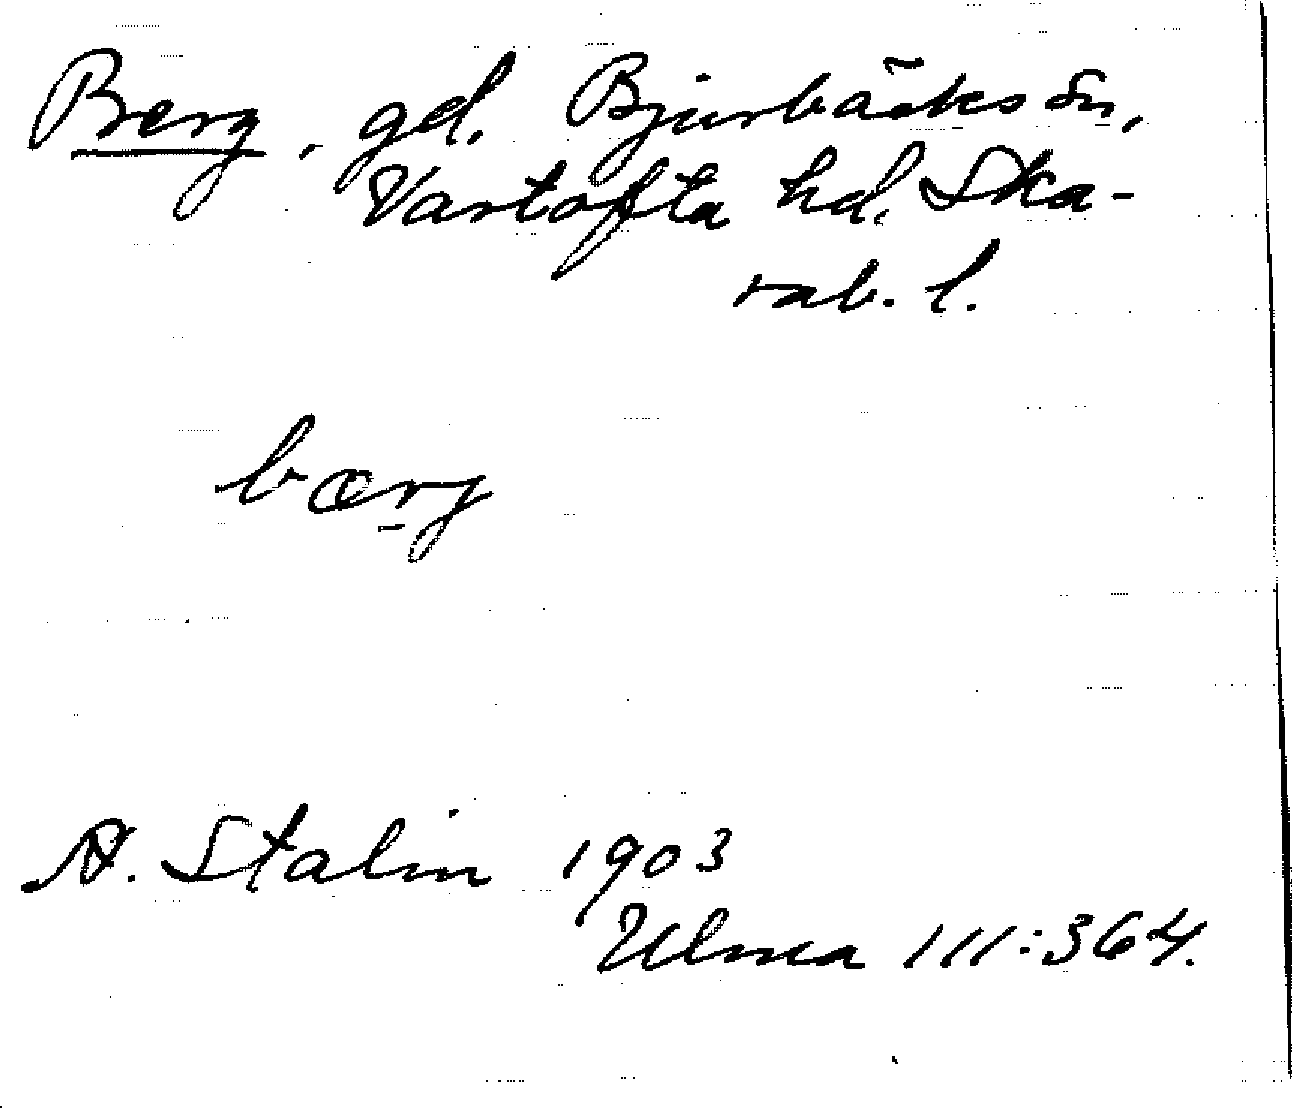 Berg, gd. Bjurbäcks sn,
Vartofta hd. Ska-
rab. l.
bærj
A. Stalin 1903
Ulma 111:364.